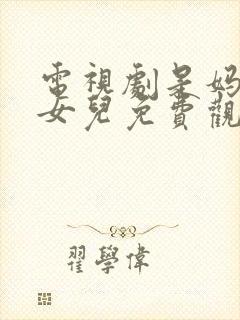 電視劇呆媽
女兒免費觀
翟學偉